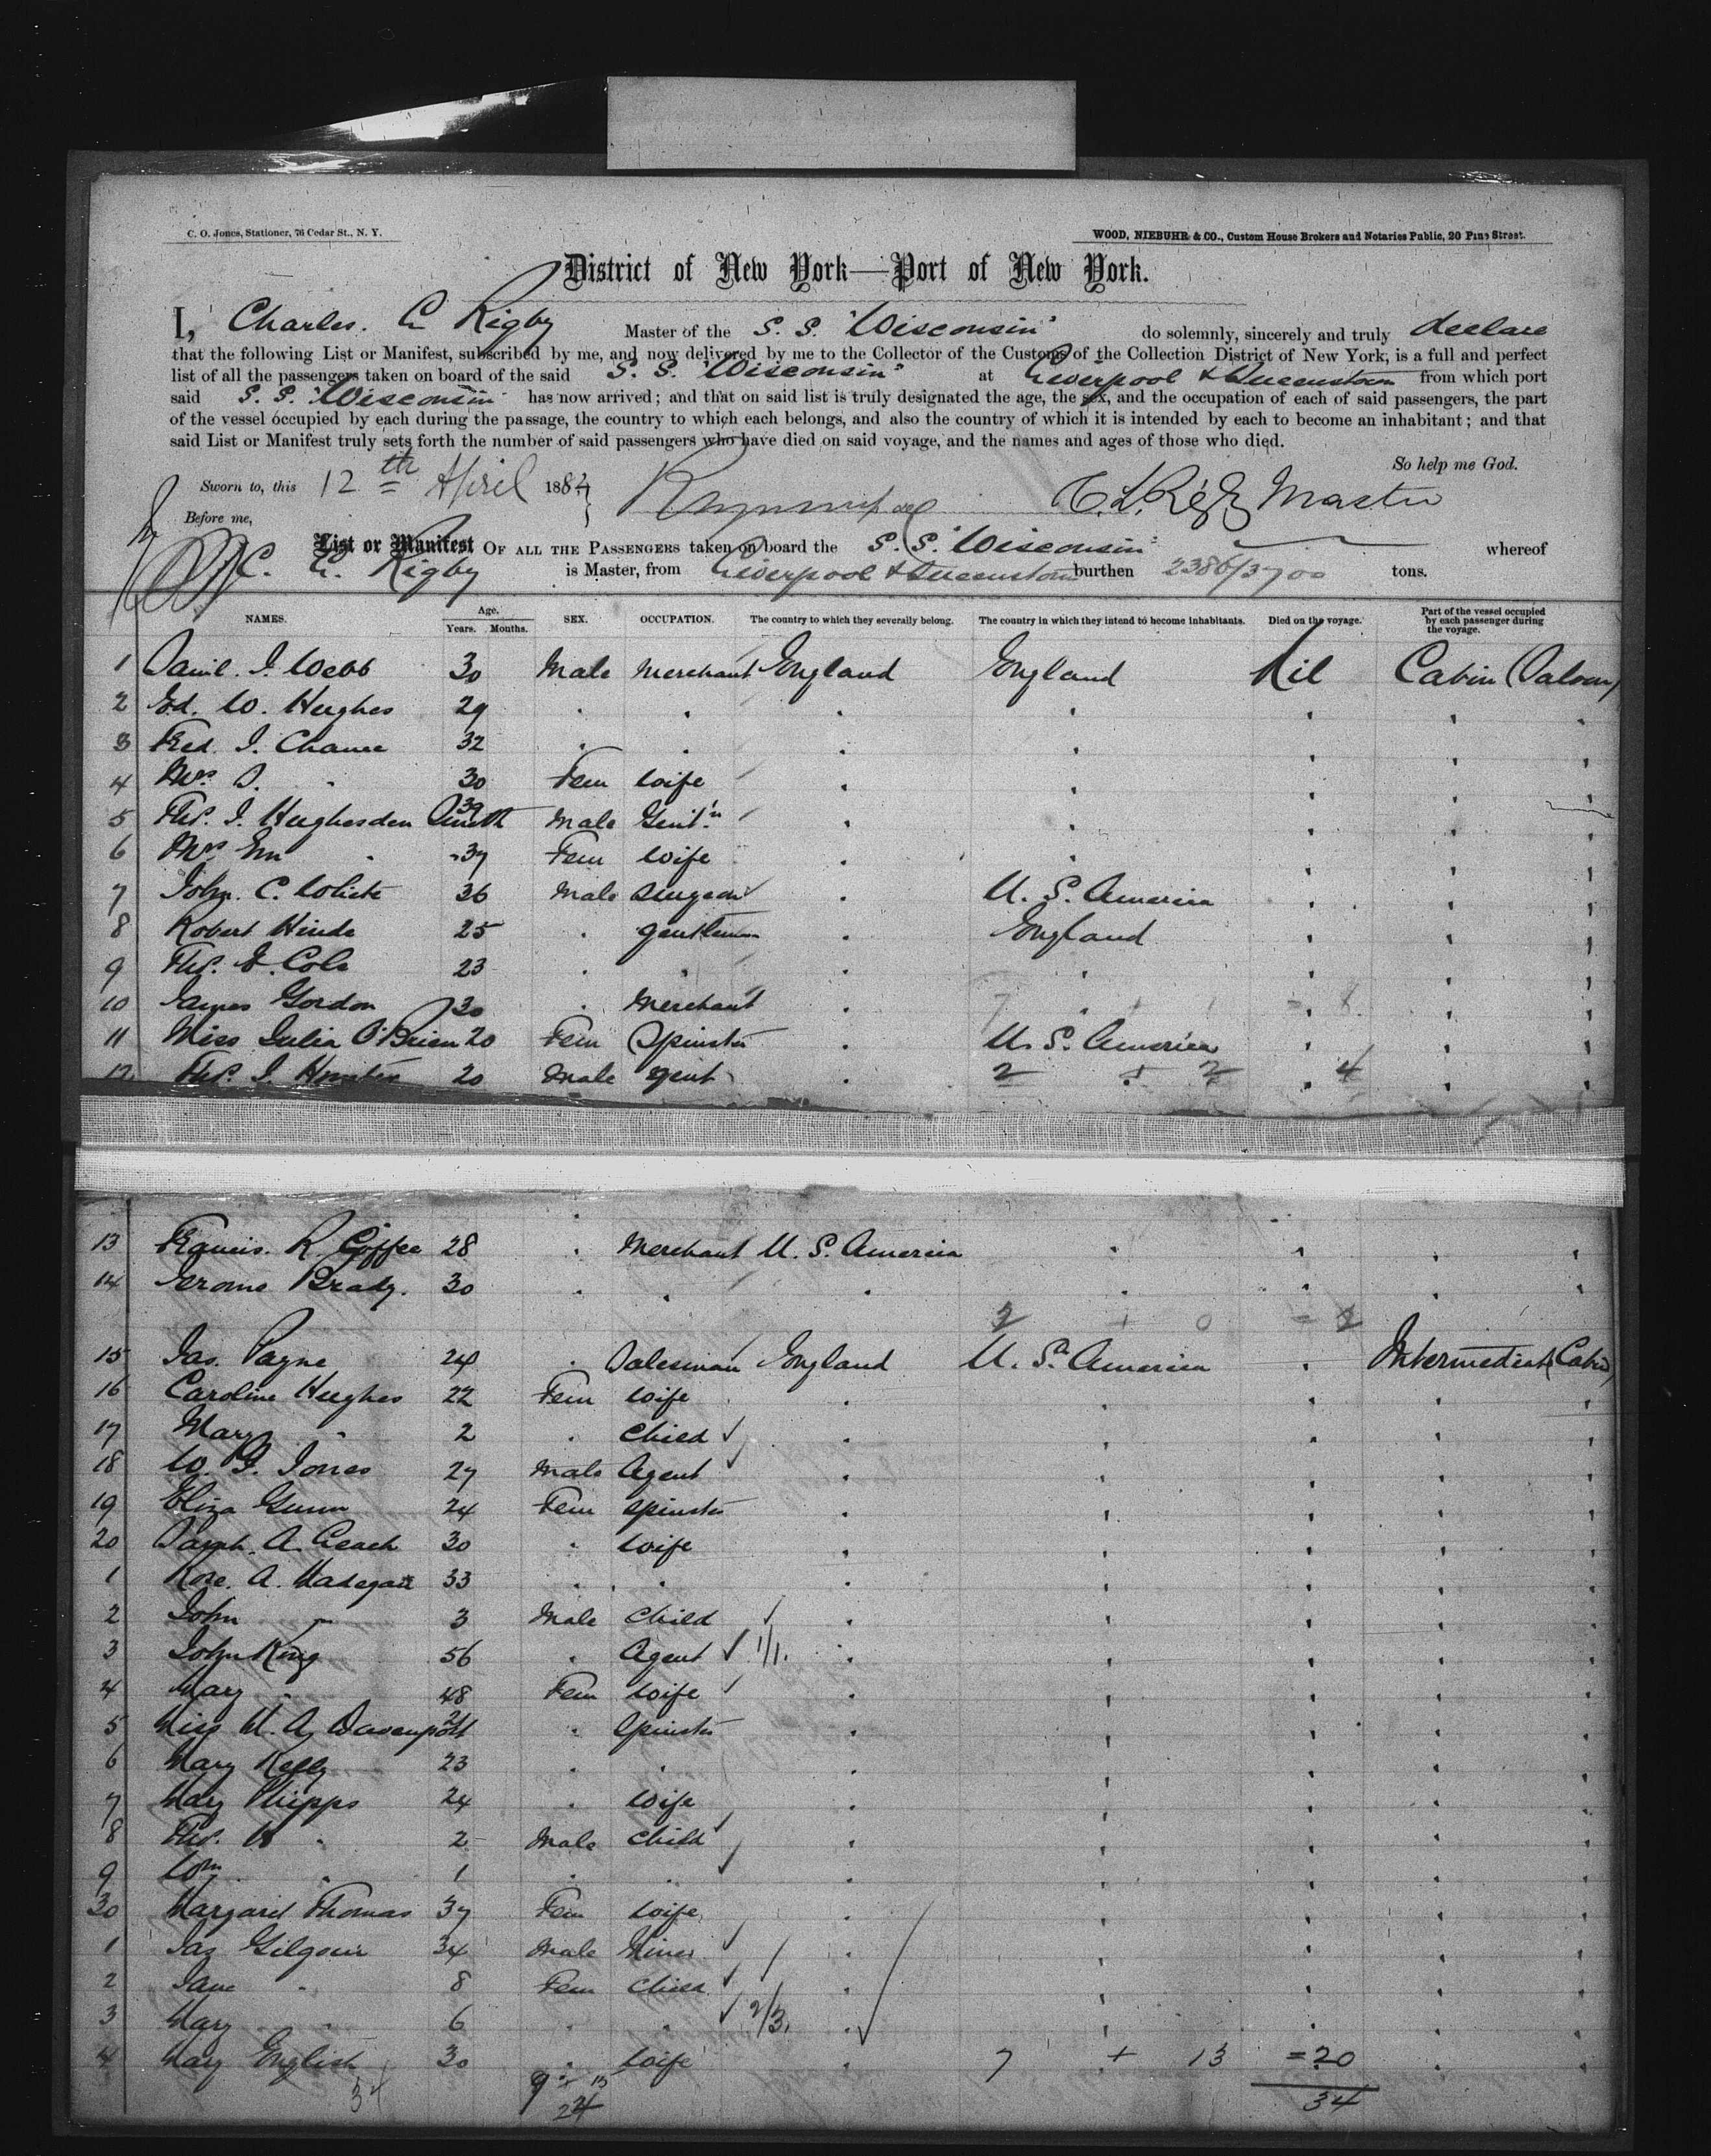 C. O. Jones, Stationer, 76 Cedar St., N. Y.
WOOD, NIEBUHR & CO., Custom House Brokers and Notaries Public, 20 Pine Street.
District of New York—Port of New York.
I, Charles. L Rigby Master of the S. S. "Wisconsin" do solemnly, sincerely and truly declare
that the following List or Manifest, subscribed by me, and now delivered by me to the Collector of the Customs of the Collection District of New York, is a full and perfect
list of all the passengers taken on board of the said S. S. "Wisconsin" at Liverpool & Queenstown from which port
said S. S. "Wisconsin" has now arrived; and that on said list is truly designated the age, the sex, and the occupation of each of said passengers, the part
of the vessel occupied by each during the passage, the country to which each belongs, and also the country of which it is intended by each to become an inhabitant; and that
said List or Manifest truly sets forth the number of said passengers who have died on said voyage, and the names and ages of those who died.
So help me God.
Sworn to, this 12th April 188
C. L. Rigby Master
Before me,
List or Manifest OF ALL THE PASSENGERS taken on board the S. S. "Wisconsin" whereof
C. L. Rigby is Master, from Liverpool & Queenstown burthen 2386/3700 tons.
NAMES. Age. Years. Months. SEX. OCCUPATION. The country to which they severally belong. The country in which they intend to become inhabitants. Died on the voyage. Part of the vessel occupied by each passenger during the voyage.
1 Saml. J. Webb 30 Male Merchant England England Nil Cabin (Saloon)
2 Ed. W. Hughes 29
3 Fred. J. Chance 32
4 Mrs S. " 30 Fem Wife
5 Thos. J. Hughesden Smith 39 Male Gent'n
6 Mrs Em " 37 Fem Wife
7 John. C. White 36 Male Surgeon U. S. America
8 Robert Hinde 25 " gentleman England
9 Thos. E. Cole 23
10 James Gordon 30 " Merchant
11 Miss Julia O'Brien 20 Fem Spinster U. S. America
12 Thos. J. 20 Male gent 2 + 2 4
13 Francis. R. Coffee 28 " Merchant U. S. America
14 Jerome Brady. 30
2 + 0 = 2
15 Jas. Payne 24 " Salesman England U. S. America " Intermediate (Cabin)
16 Caroline Hughes 22 Fem Wife
17 Mary " 2 " Child
18 W. G. Jones 27 Male Agent
19 Eliza Gunn 24 Fem Spinster
20 Sarah. A. Leach 30 " Wife
1 Rose. A. 33
2 John " 3 Male Child
3 John King 56 " Agent 1/1.
4 Mary " 48 Fem Wife
5 Miss M. A. Davenport 21 " Spinster
6 Mary Kelly 23
7 Mary Phipps 24 " Wife
8 Thos. " 2 Male Child
9 Wm " 1
30 Margaret Thomas 37 Fem Wife
1 Jas Gilgour 34 Male Miner
2 Jane " 8 Fem Child
3 Mary " 6 " " 2/3.
4 Mary English 30 " Wife 7 + 13 = 20
34 9 + 15 34
24